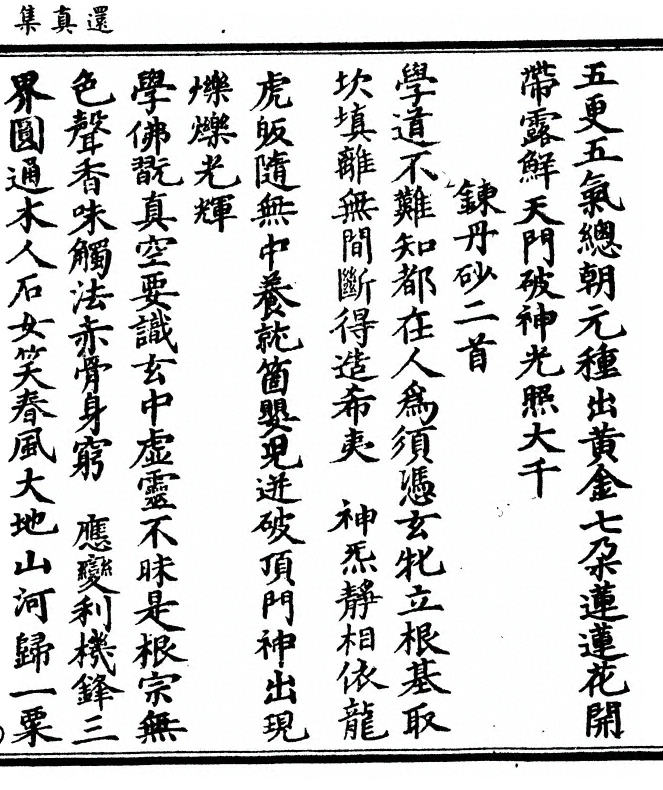 還真集
五更五氣總朝元種出黃金七朶蓮蓮花開
帶露鮮天門破神光照大千
鍊丹砂二首
學道不難知都在人為須憑玄牝立根基取
坎填離無間斷得造希夷　神炁靜相依龍
虎皈隨無中養就箇嬰児迸破頂門神出現
爍爍光輝
學佛翫真空要識玄中虛靈不昧是根宗無
色聲香味觸法赤骨身窮　應變利機鋒三
界圓通木人石女笑春風大地山河歸一粟